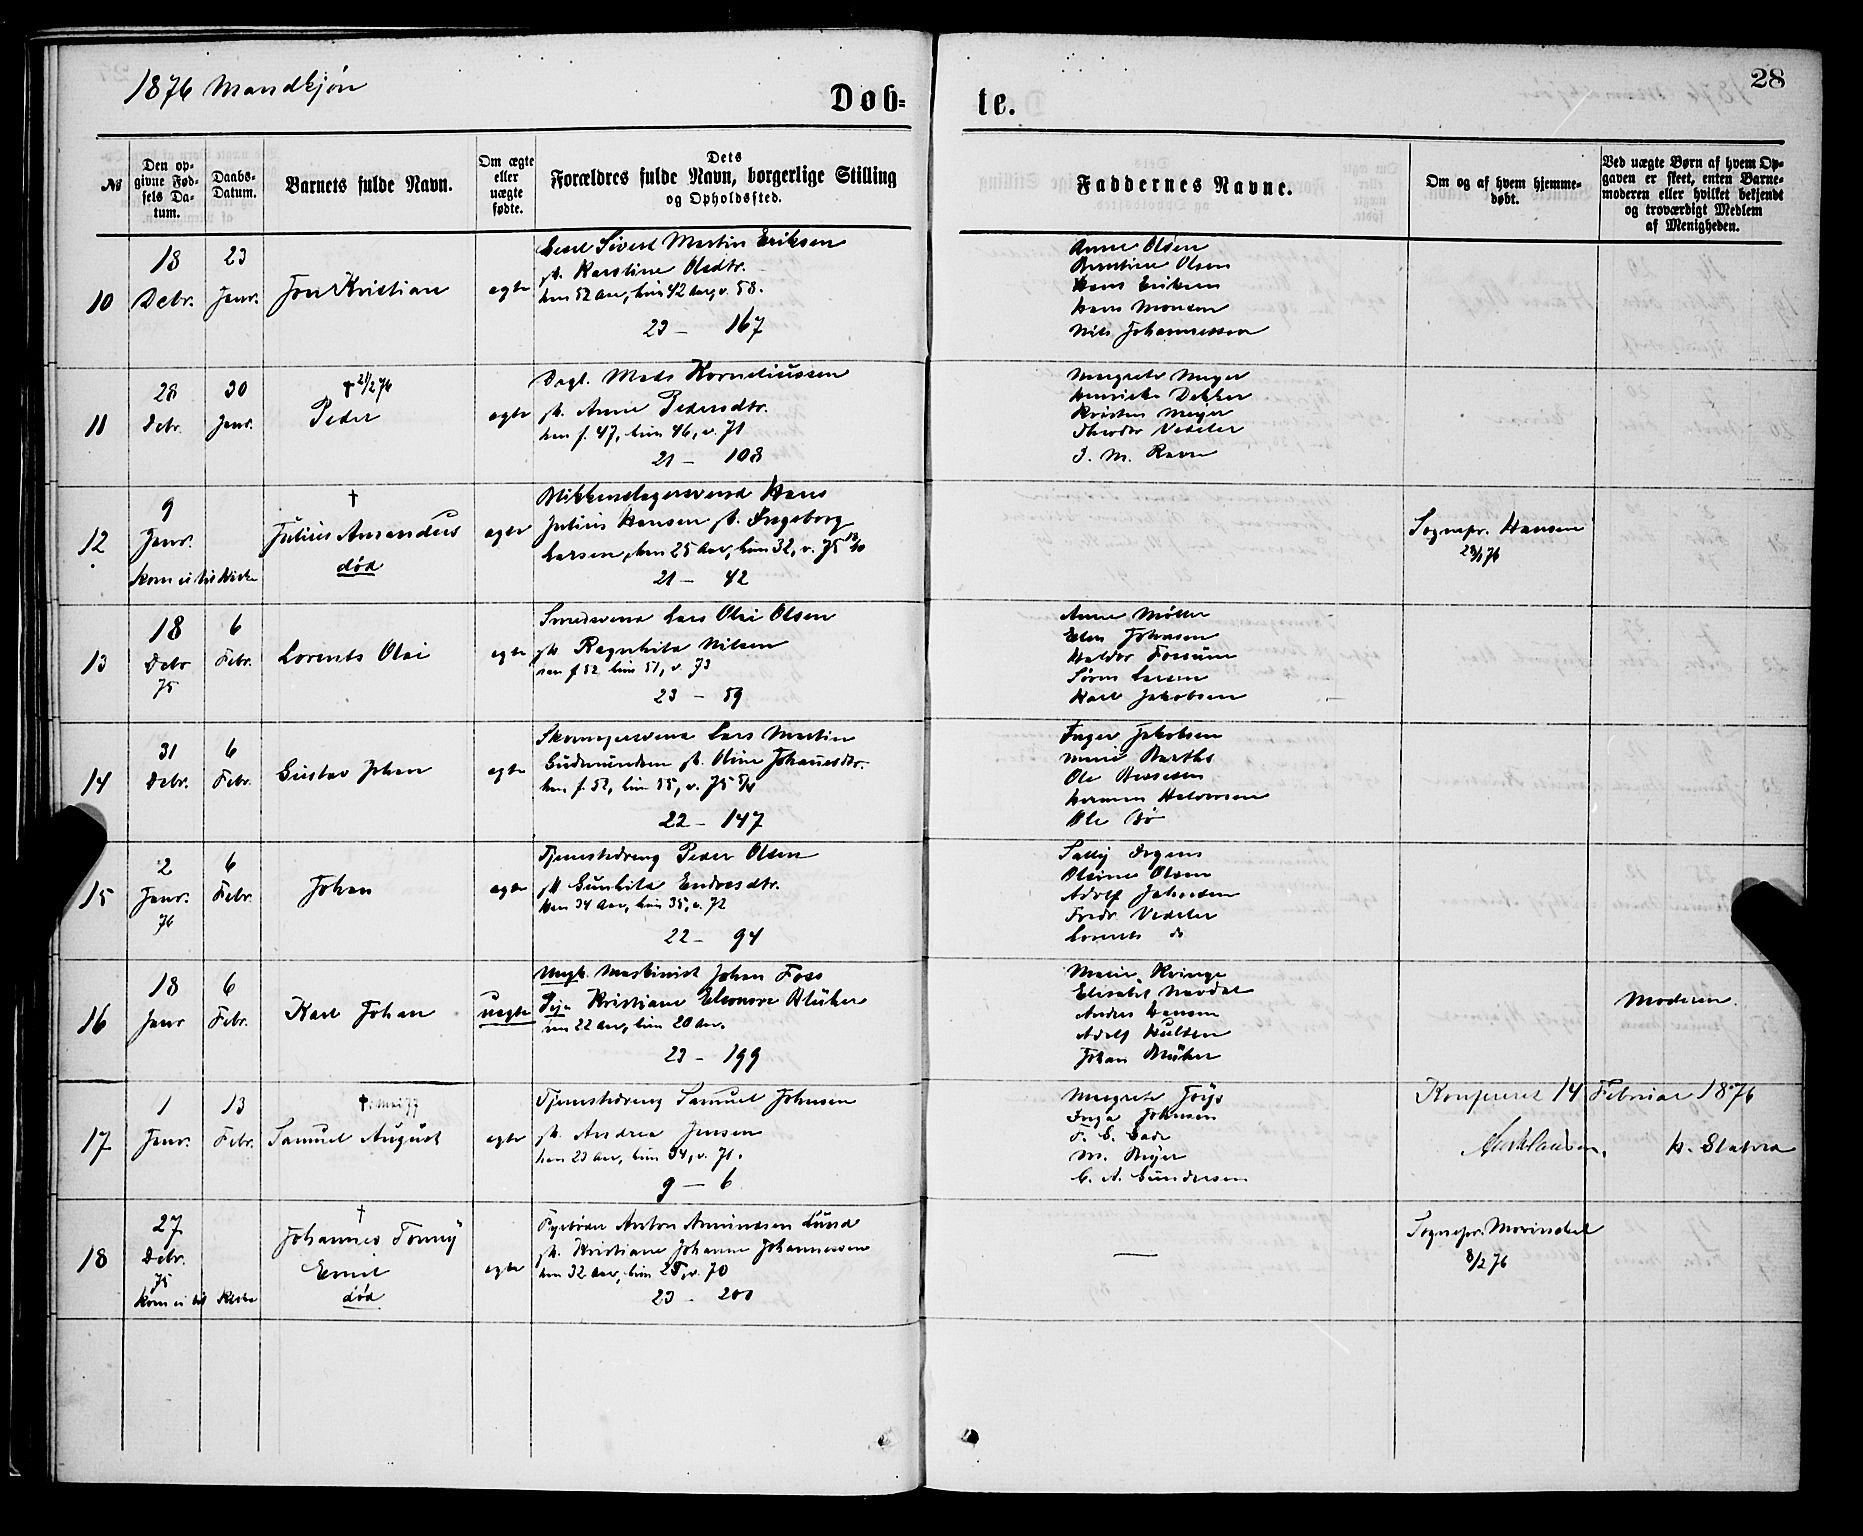 1876 Mandkjøn
Døb-
te.
28
№
Den op-
givne Fød-
sels Da-
tum.
Daabs-
Datum.
Barnets fulde Navn.
Om ægte
eller
uægte
fødte.
Dets
Forældres fulde Navn, borgerlige Stilling
og Opholdssted.
Faddernes Navne.
Om og af hvem hjemme-
døbt.
Ved uægte Børn af hvem Op-
gaven er skeet, enten Barne-
moderen eller hvilket bekjendt
og troværdigt Medlem
af Menigheden.
10
18
Debr.
23
Janr.
Jon Kristian
egte
Sivert Martin Eriksen
Karstine Olsdtr.
han 52 Aar, hun 42 Aar, v. 58.
23 — 167
Anne Olsen
Berntine Olsen
Hans Eriksen
Hans Monsen
Nils Johannessen
11
28
Debr.
30
Janr.
† 21/2 76
Peder
egte
Dagl. Mads Korneliussen
Anne Pedersdtr.
han f. 47, hun 46, v. 71
21 — 108
Margrete Meyer
Henrikke Dekker
Kristen Meyer
Theodor Vedeler
J. M. Ravn
12
9
Janr.
Kom ei til Kirke
†
Julius Amandus
død
egte
Blikkenslagersvend Hans
Julius Hansen Ingeborg
Larsen, han 25 Aar, hun 32, v. 75
21 — 42
Sognepr. Hansen
13
18
Debr
75
6
Febr.
Lorents Olai
egte
Smedsvend Lars Olai Olsen
Ragnhild Nilsen
han f 52 hun 51, v. 73
23 — 59
Anne Møller
Elen Johnsen
Haldor Fossum
Søren Larsen
Karl Jakobsen
14
31
Debr.
6
Febr.
Gustav Johan
egte
Skomagersvend Lars Martin
Gudmundsen Oline Johannesdtr.
han f. 52, hun 55, v. 75
22 — 147
Inger Jakobsen
Marie Barths
Ole
Herman Halvorsen
Ole Bø
15
2
Janr.
76
6
Febr.
Johan
egte
Tjenestedreng Peder Olsen
Gunhild Endresdtr.
Han 34 Aar, hun 35, v. 72
22 — 94
Sally Irgens
Olsen
Adolf
Fredr. Vedeler
Lorents do
16
18
Janr
6
Febr.
Karl Johan
uegte
Ungk. Maskinist Johan Foss
Pige Kristiane Eleonore Blüher
han 22 Aar, hun 20 Aar.
23 — 199
Marie Kvinge
Elisabet Nævdal
Anders Hansen
Adolf
Johan Blüher
Moderen.
17
1
Janr.
13
Febr.
Samuel August
egte
Tjenestedreng Samuel Johnsen
Andrea Jensen
han 23 Aar, hun 34, v. 71.
9 — 6
Margrete
Inga Johnsen
F. G. Gade
M. Beyer
C. A. Gundersen
Konfereret 14 Februar 1876
18
27
Debr.
75
Kom ei til Kirke
†
Johannes Tonny
Emil
død
egte
Fyrbøder Anton Amundsen Lund
Kristiane Johanne Johannessen
han 32 Aar, hun 25, v. 70
23 — 200
—
Sognepr. Morinckel
8/2 76